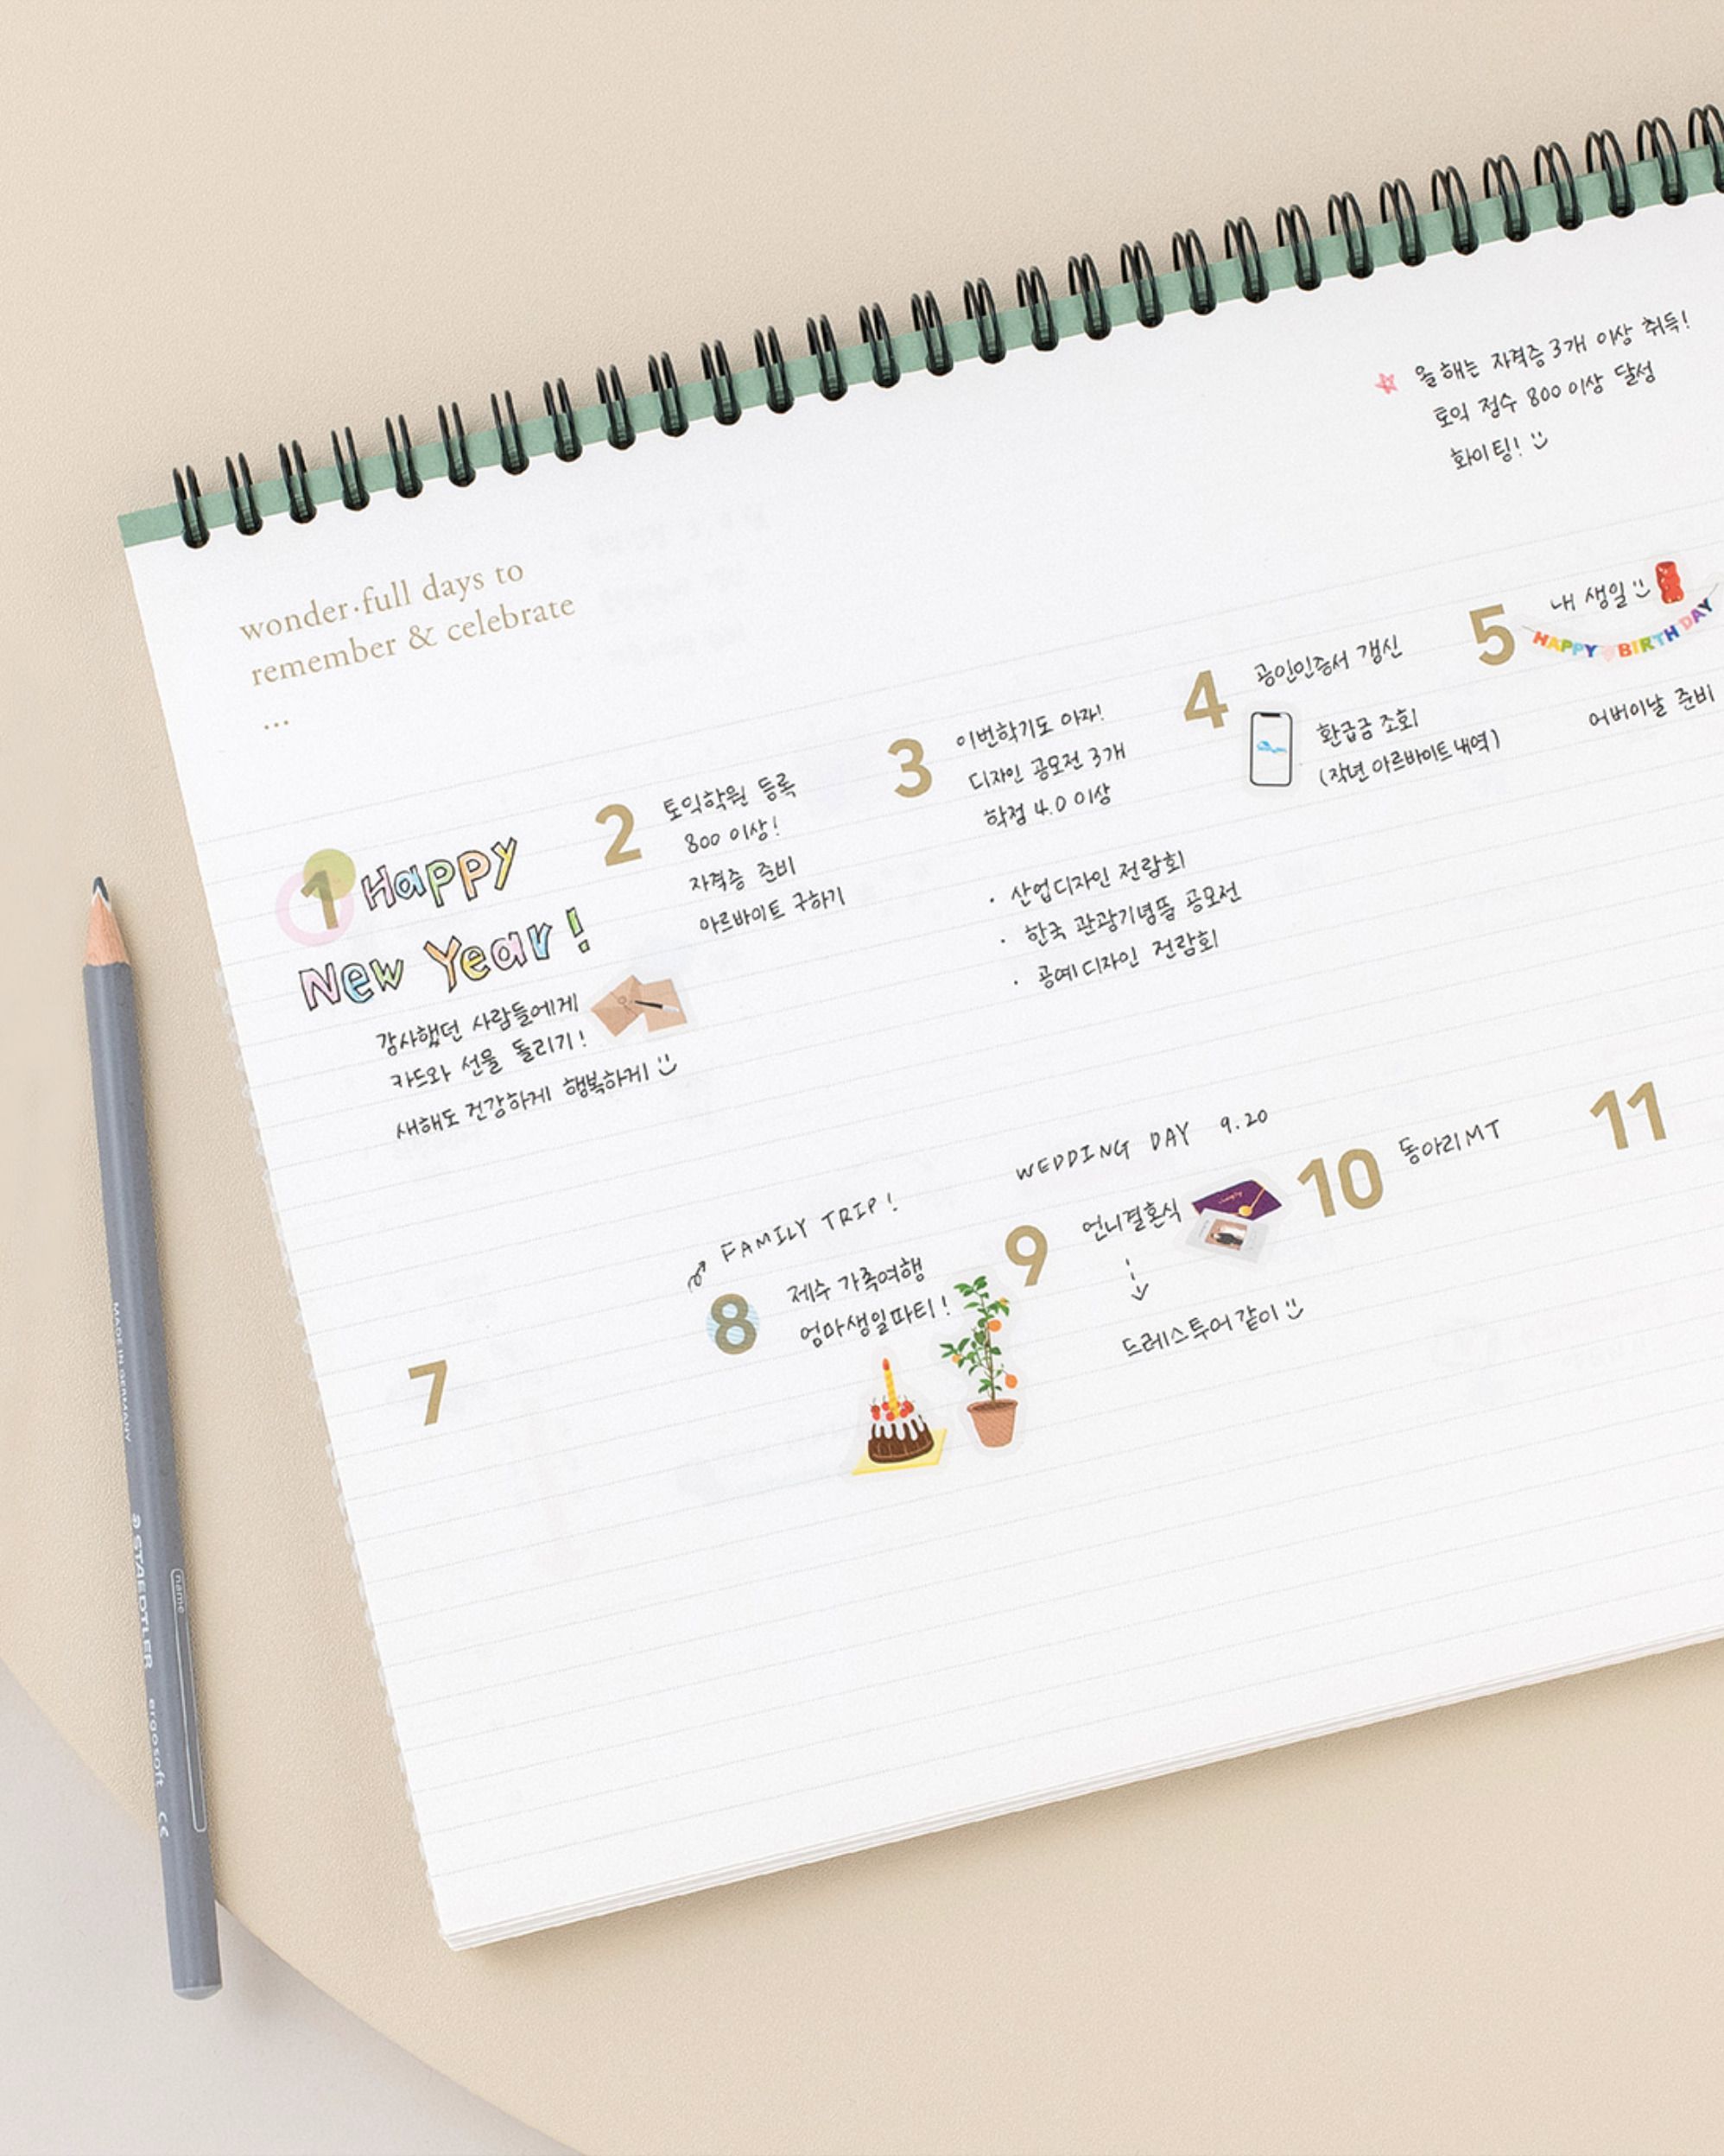 wonder·full days to
remember & celebrate
...
☆ 올해는 자격증 3개 이상 취득!
토익 점수 800이상 달성
화이팅!
1 Happy
New Year!
감사했던 사람들에게
카드와 선물 돌리기!
새해도 건강하게 행복하게
2 토익학원 등록
800 이상!
자격증 준비
아르바이트 구하기
3 이번학기도 아자!
디자인 공모전 3개
학점 4.0 이상
· 산업디자인 전람회
· 한국 관광기념품 공모전
· 공예디자인 전람회
4 공인인증서 갱신
환급금 조회
(작년 아르바이트 내역)
5 내 생일
HAPPY BIRTHDAY
어버이날 준비
7
FAMILY TRIP!
8 제주 가족여행
엄마생일파티!
WEDDING DAY 9.20
9 언니결혼식
드레스투어 같이
10 동아리 MT
11
MADE IN GERMANY
STAEDTLER
ergosoft
CE
name